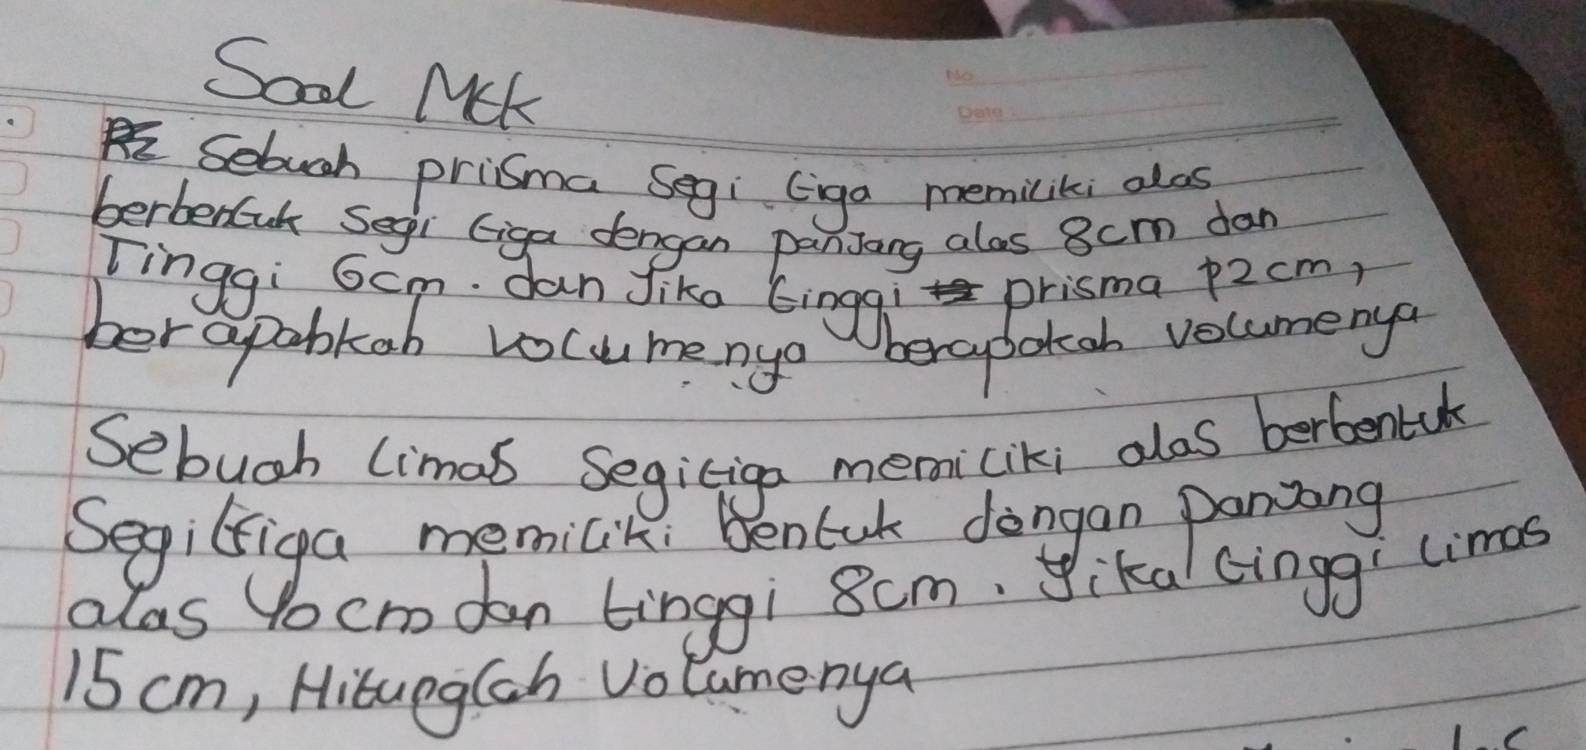 Soal Mtk
No
Date
Sebuah priisma segi tiga memiliki alas
berbentuk segi tiga dengan panjang alas 8cm dan
Tinggi 6cm. dan Jika tinggi prisma 12cm,
berapabkah volumenya berapakah volumenya
Sebuah limas segitiga memiliki alas berbentuk
Segitiga memiliki bentuk dengan panjang
alas 40cm dan tinggi 8cm. Jika tinggi limas
15cm, Hitunglah volumenya